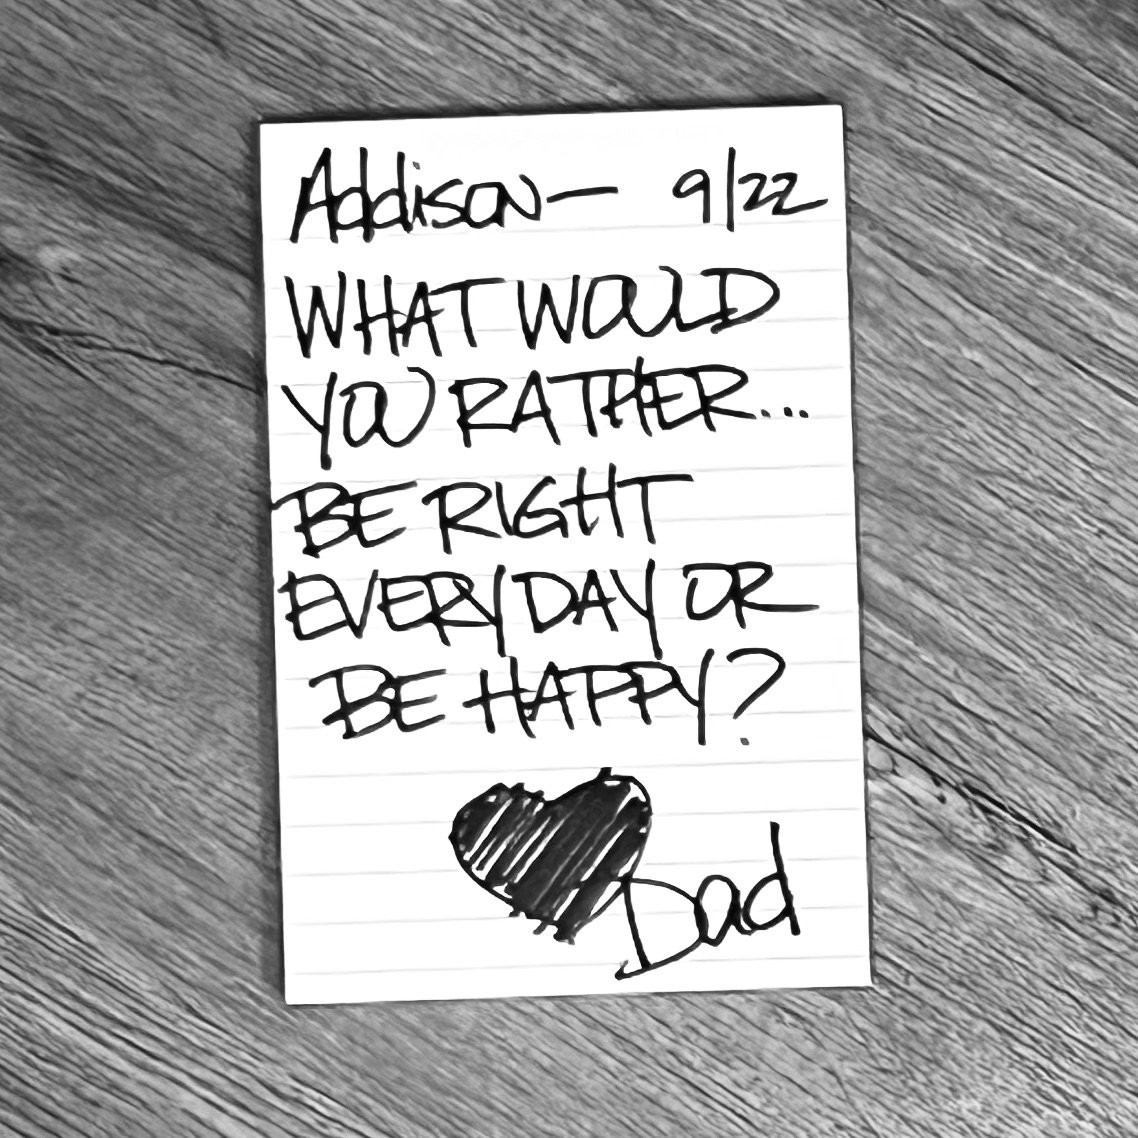 Addison— 9/22
WHAT WOULD
YOU RATHER...
BE RIGHT
EVERY DAY OR
BE HAPPY?
Dad